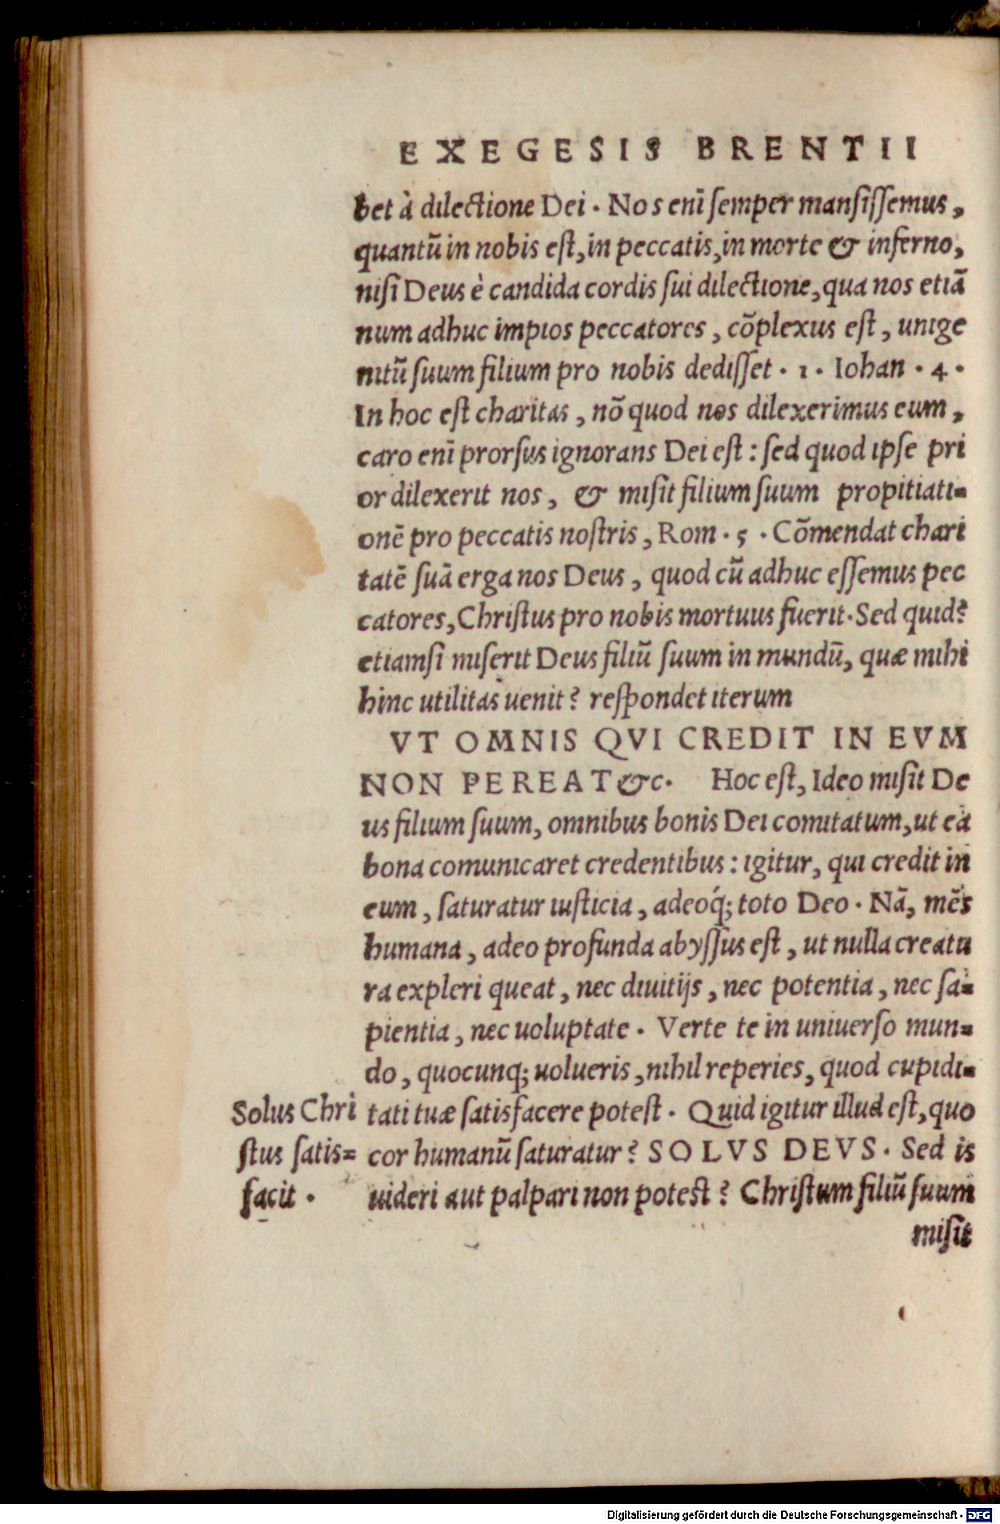 EXEGESIS BRENTII
bet à dilectione Dei. Nos enī semper mansissemus,
quantū in nobis est, in peccatis, in morte & inferno,
nisi Deus è candida cordis sui dilectione, qua nos etiā
num adhuc impios peccatores, cōplexus est, unige
nitū suum filium pro nobis dedisset. 1. Iohan. 4.
In hoc est charitas, nō quod nos dilexerimus eum,
caro enī prorsus ignorans Dei est: sed quod ipse pri
or dilexerit nos, & misit filium suum propitiati=
onē pro peccatis nostris, Rom. 5. Cōmendat chari
tatē suā erga nos Deus, quod cū adhuc essemus pec
catores, Christus pro nobis mortuus fuerit. Sed quid?
etiamsi miserit Deus filiū suum in mundū, quæ mihi
hinc utilitas uenit? respondet iterum
VT OMNIS QVI CREDIT IN EVM
NON PEREAT &c. Hoc est, Ideo misit De
us filium suum, omnibus bonis Dei comitatum, ut ea
bona comunicaret credentibus: igitur, qui credit in
eum, saturatur iusticia, adeoq́; toto Deo. Nā, mēs
humana, adeo profunda abyssus est, ut nulla creatu
ra expleri queat, nec diuitijs, nec potentia, nec sa=
pientia, nec uoluptate. Verte te in uniuerso mun=
do, quocunq; uolueris, nihil reperies, quod cupidi=
tati tuæ satisfacere potest. Quid igitur illud est, quo
cor humanū saturatur? SOLVS DEVS. Sed is
uideri aut palpari non potest? Christum filiū suum
misit
Solus Chri
stus satis=
facit.
Digitalisierung gefördert durch die Deutsche Forschungsgemeinschaft - DFG